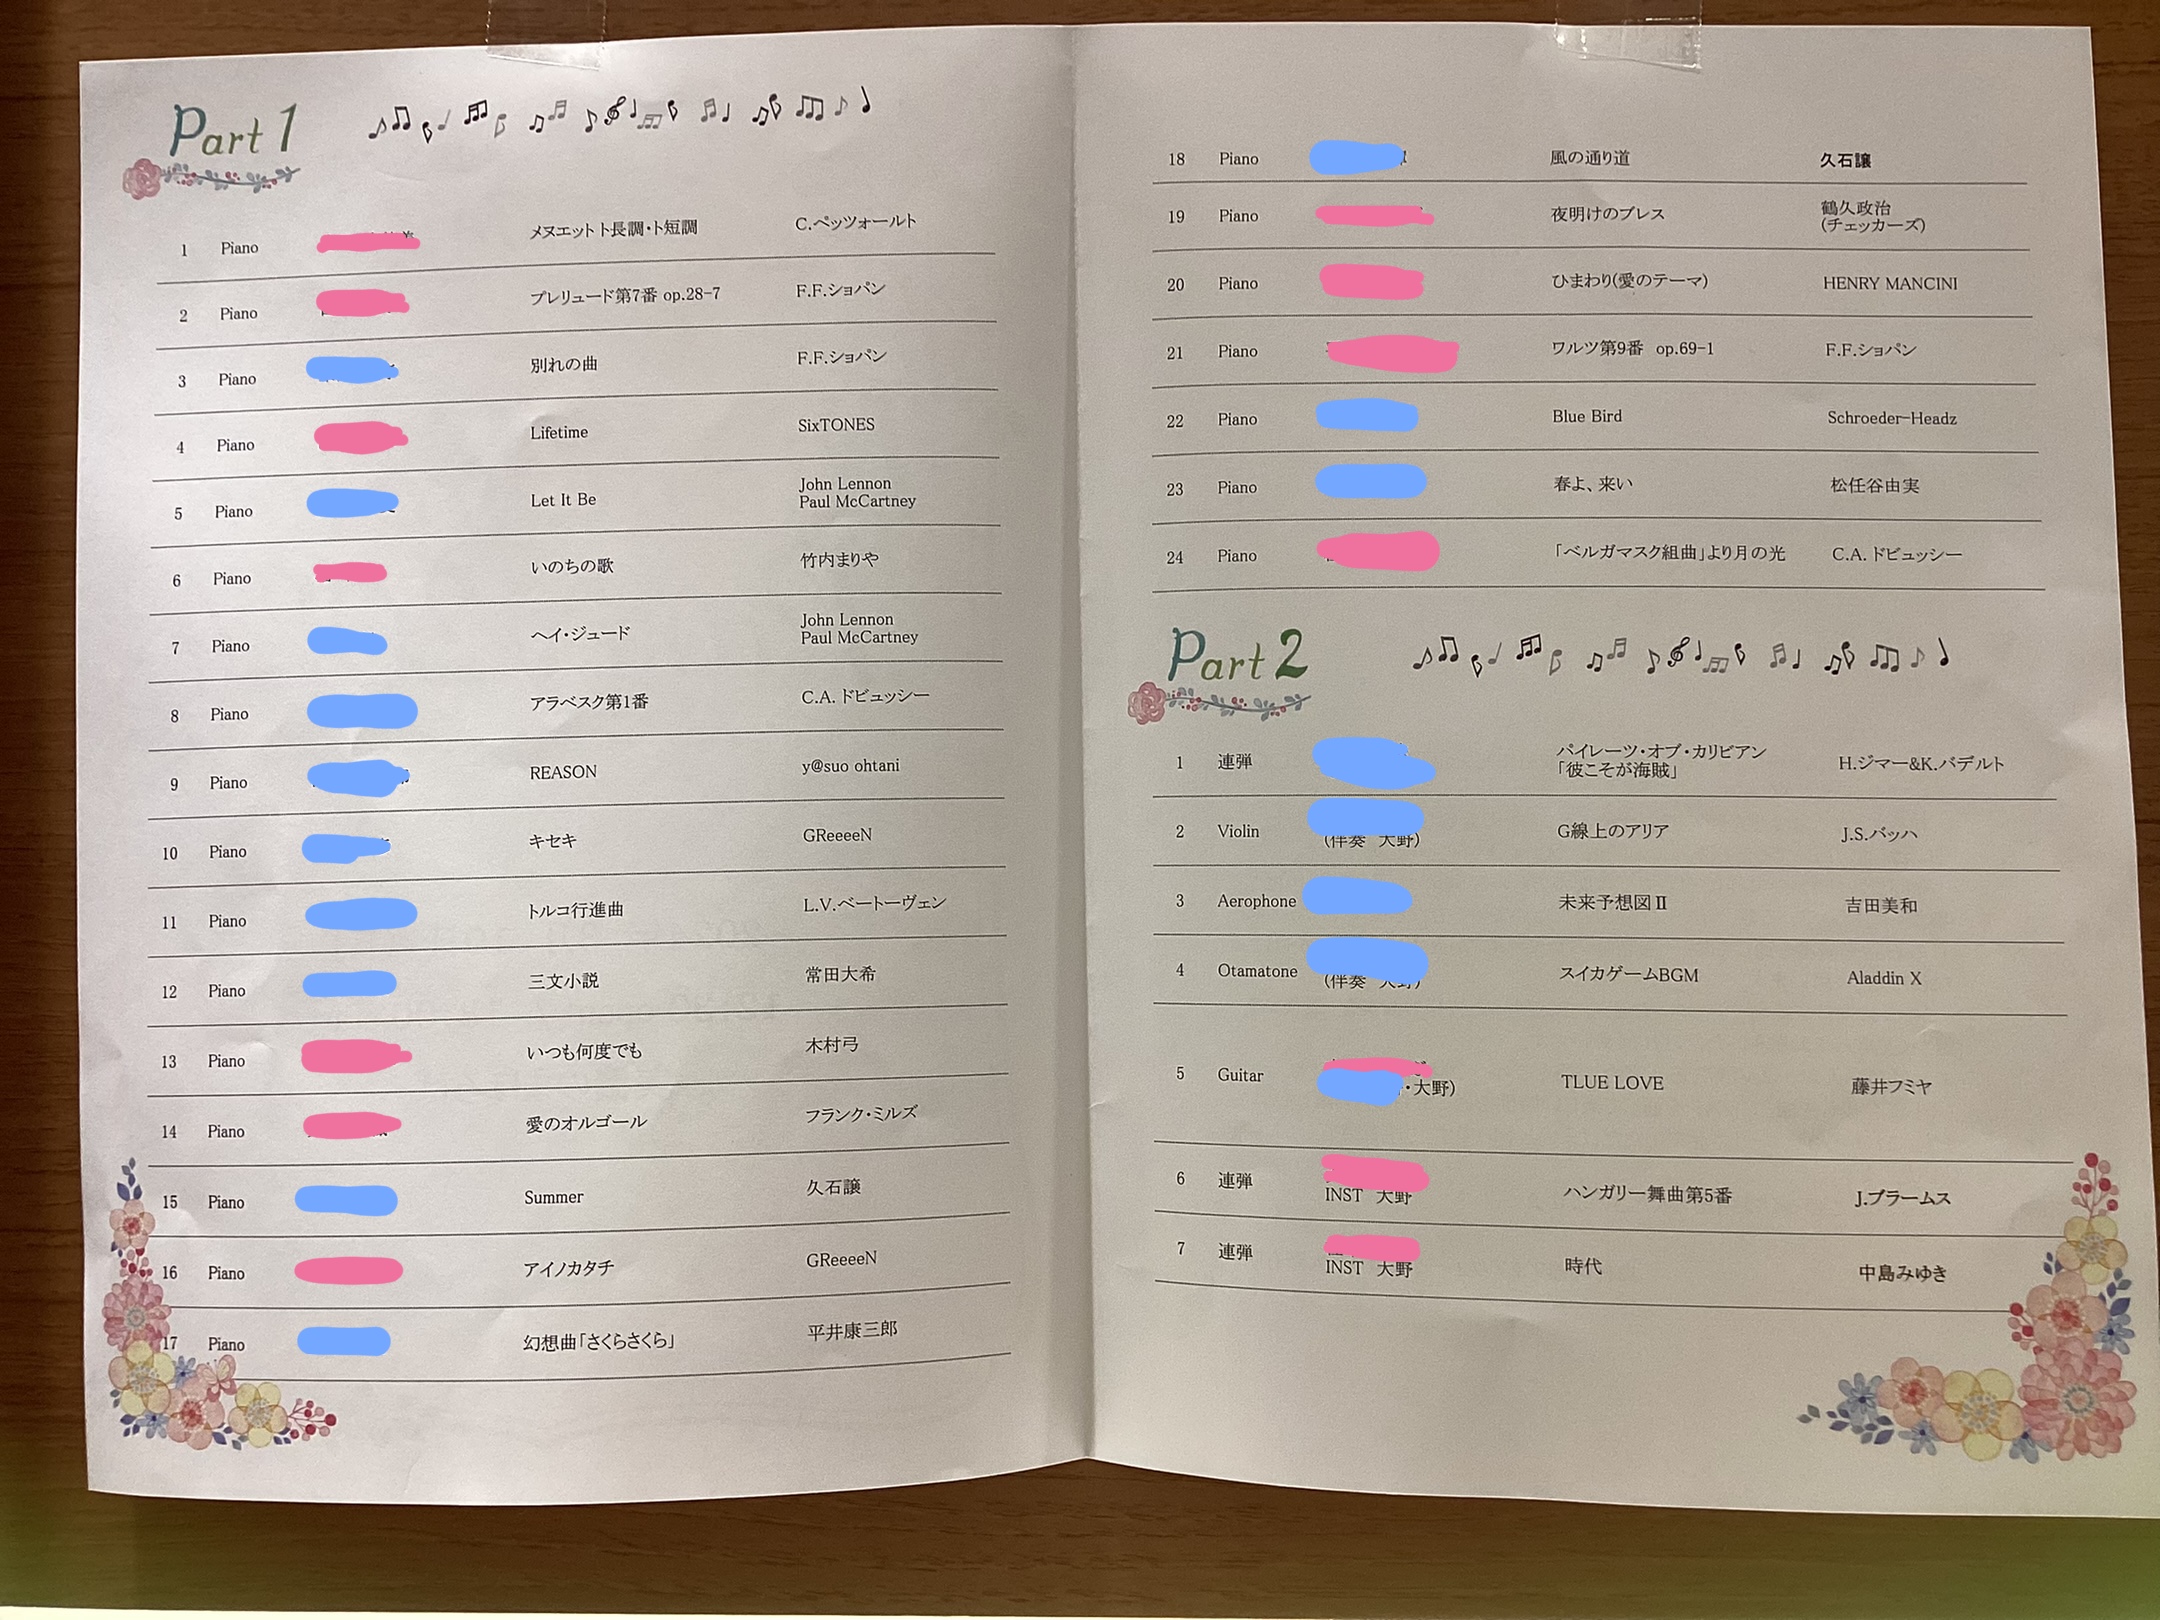 Part 1
1 Piano メヌエット ト長調・ト短調 C.ペッツォールト
2 Piano プレリュード第7番 op.28-7 F.F.ショパン
3 Piano 別れの曲 F.F.ショパン
4 Piano Lifetime SixTONES
5 Piano Let It Be John Lennon
Paul McCartney
6 Piano いのちの歌 竹内まりや
7 Piano ヘイ・ジュード John Lennon
Paul McCartney
8 Piano アラベスク第1番 C.A. ドビュッシー
9 Piano REASON y@suo ohtani
10 Piano キセキ GReeeeN
11 Piano トルコ行進曲 L.V.ベートーヴェン
12 Piano 三文小説 常田大希
13 Piano いつも何度でも 木村弓
14 Piano 愛のオルゴール フランク・ミルズ
15 Piano Summer 久石譲
16 Piano アイノカタチ GReeeeN
17 Piano 幻想曲「さくらさくら」 平井康三郎
18 Piano 風の通り道 久石譲
19 Piano 夜明けのブレス 鶴久政治
(チェッカーズ)
20 Piano ひまわり(愛のテーマ) HENRY MANCINI
21 Piano ワルツ第9番 op.69-1 F.F.ショパン
22 Piano Blue Bird Schroeder-Headz
23 Piano 春よ、来い 松任谷由実
24 Piano 「ベルガマスク組曲」より月の光 C.A. ドビュッシー
Part 2
1 連弾 パイレーツ・オブ・カリビアン H.ジマー&K.バデルト
「彼こそが海賊」
2 Violin G線上のアリア J.S.バッハ
(伴奏 大野)
3 Aerophone 未来予想図Ⅱ 吉田美和
4 Otamatone スイカゲームBGM Aladdin X
(伴奏 大野)
5 Guitar TLUE LOVE 藤井フミヤ
・大野)
6 連弾 ハンガリー舞曲第5番 J.ブラームス
INST 大野
7 連弾 時代 中島みゆき
INST 大野